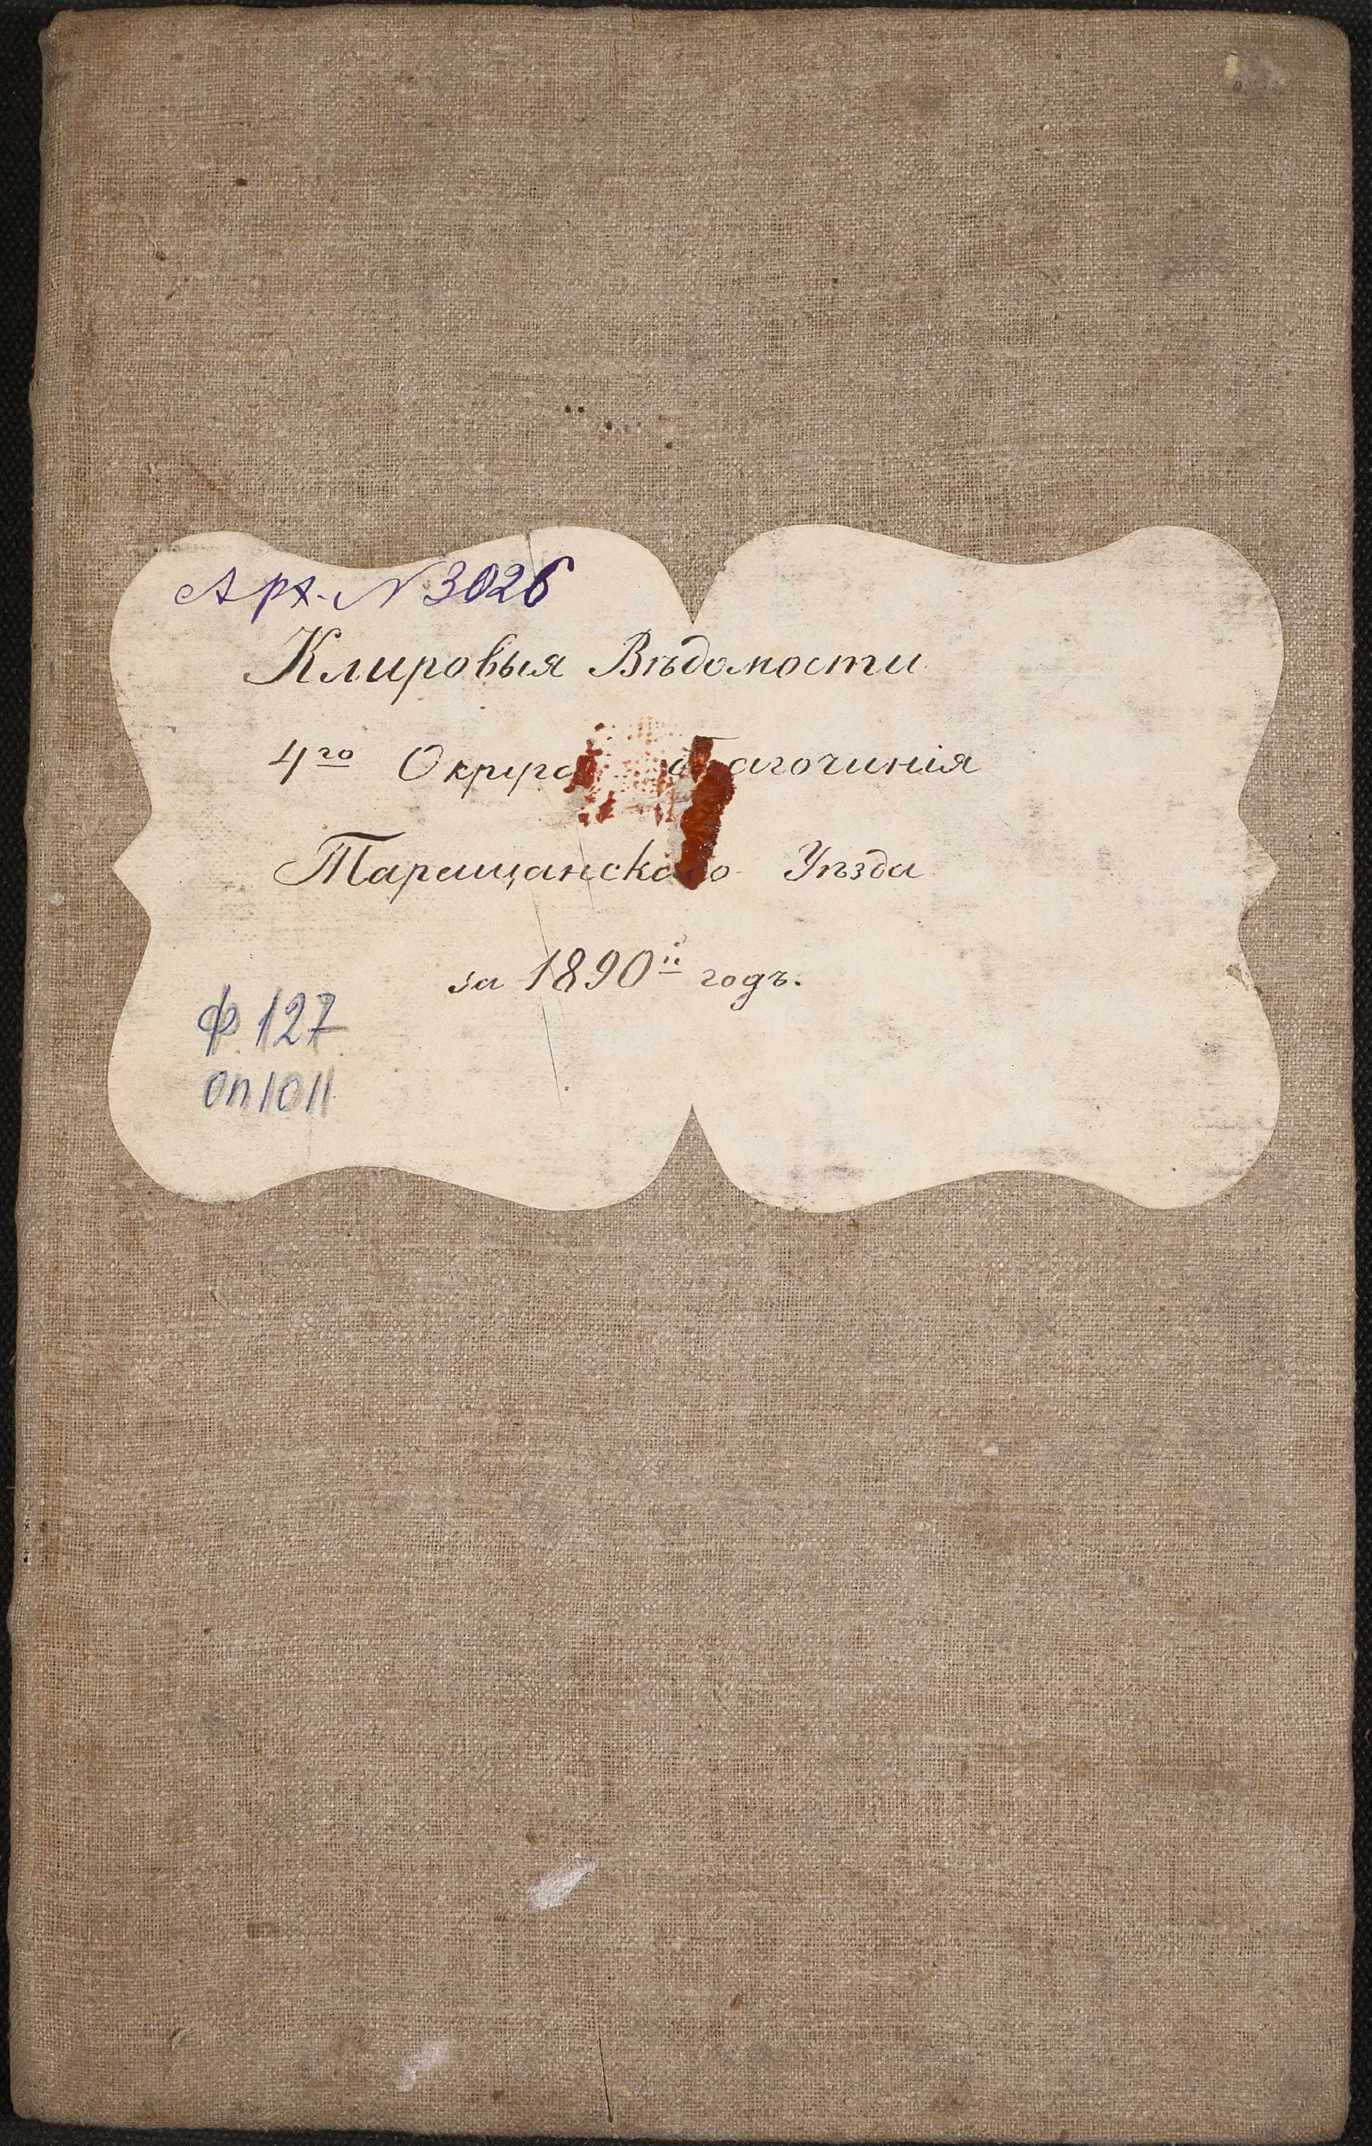 Арх. № 3026
Клировыя Вѣдомости
4го Округа агочинія
Таращанско Уѣзда
за 1890й годъ.
ф. 127
оп 1011